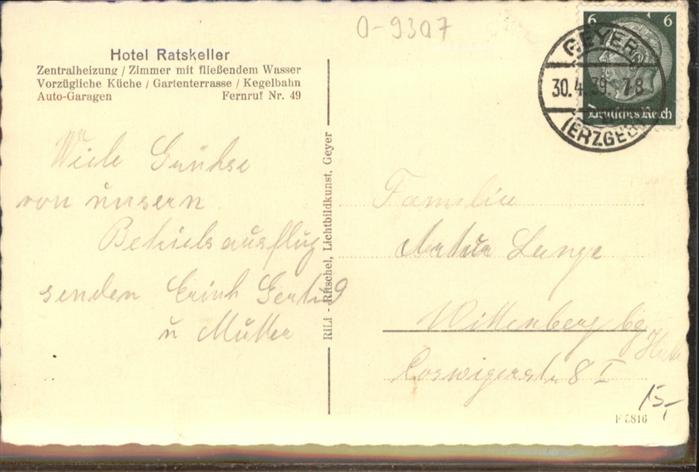 0-9307
Hotel Ratskeller
Zentralheizung / Zimmer mit fließendem Wasser
Vorzügliche Küche / Gartenterrasse / Kegelbahn
Auto-Garagen Fernruf Nr. 49
6 6
Deutsches Reich
GEYER
30.4.39. 7-8
(ERZGEB)
Viele Grühse
von unsern
Betriebsausflug
senden Erich Gertrud
u Mutter
RiLi - Rüschel, Lichtbildkunst, Geyer
Familie
Artur Lange
Wittenberg bz
Halle
Coswigerstr 8 I
15,-
F 5816